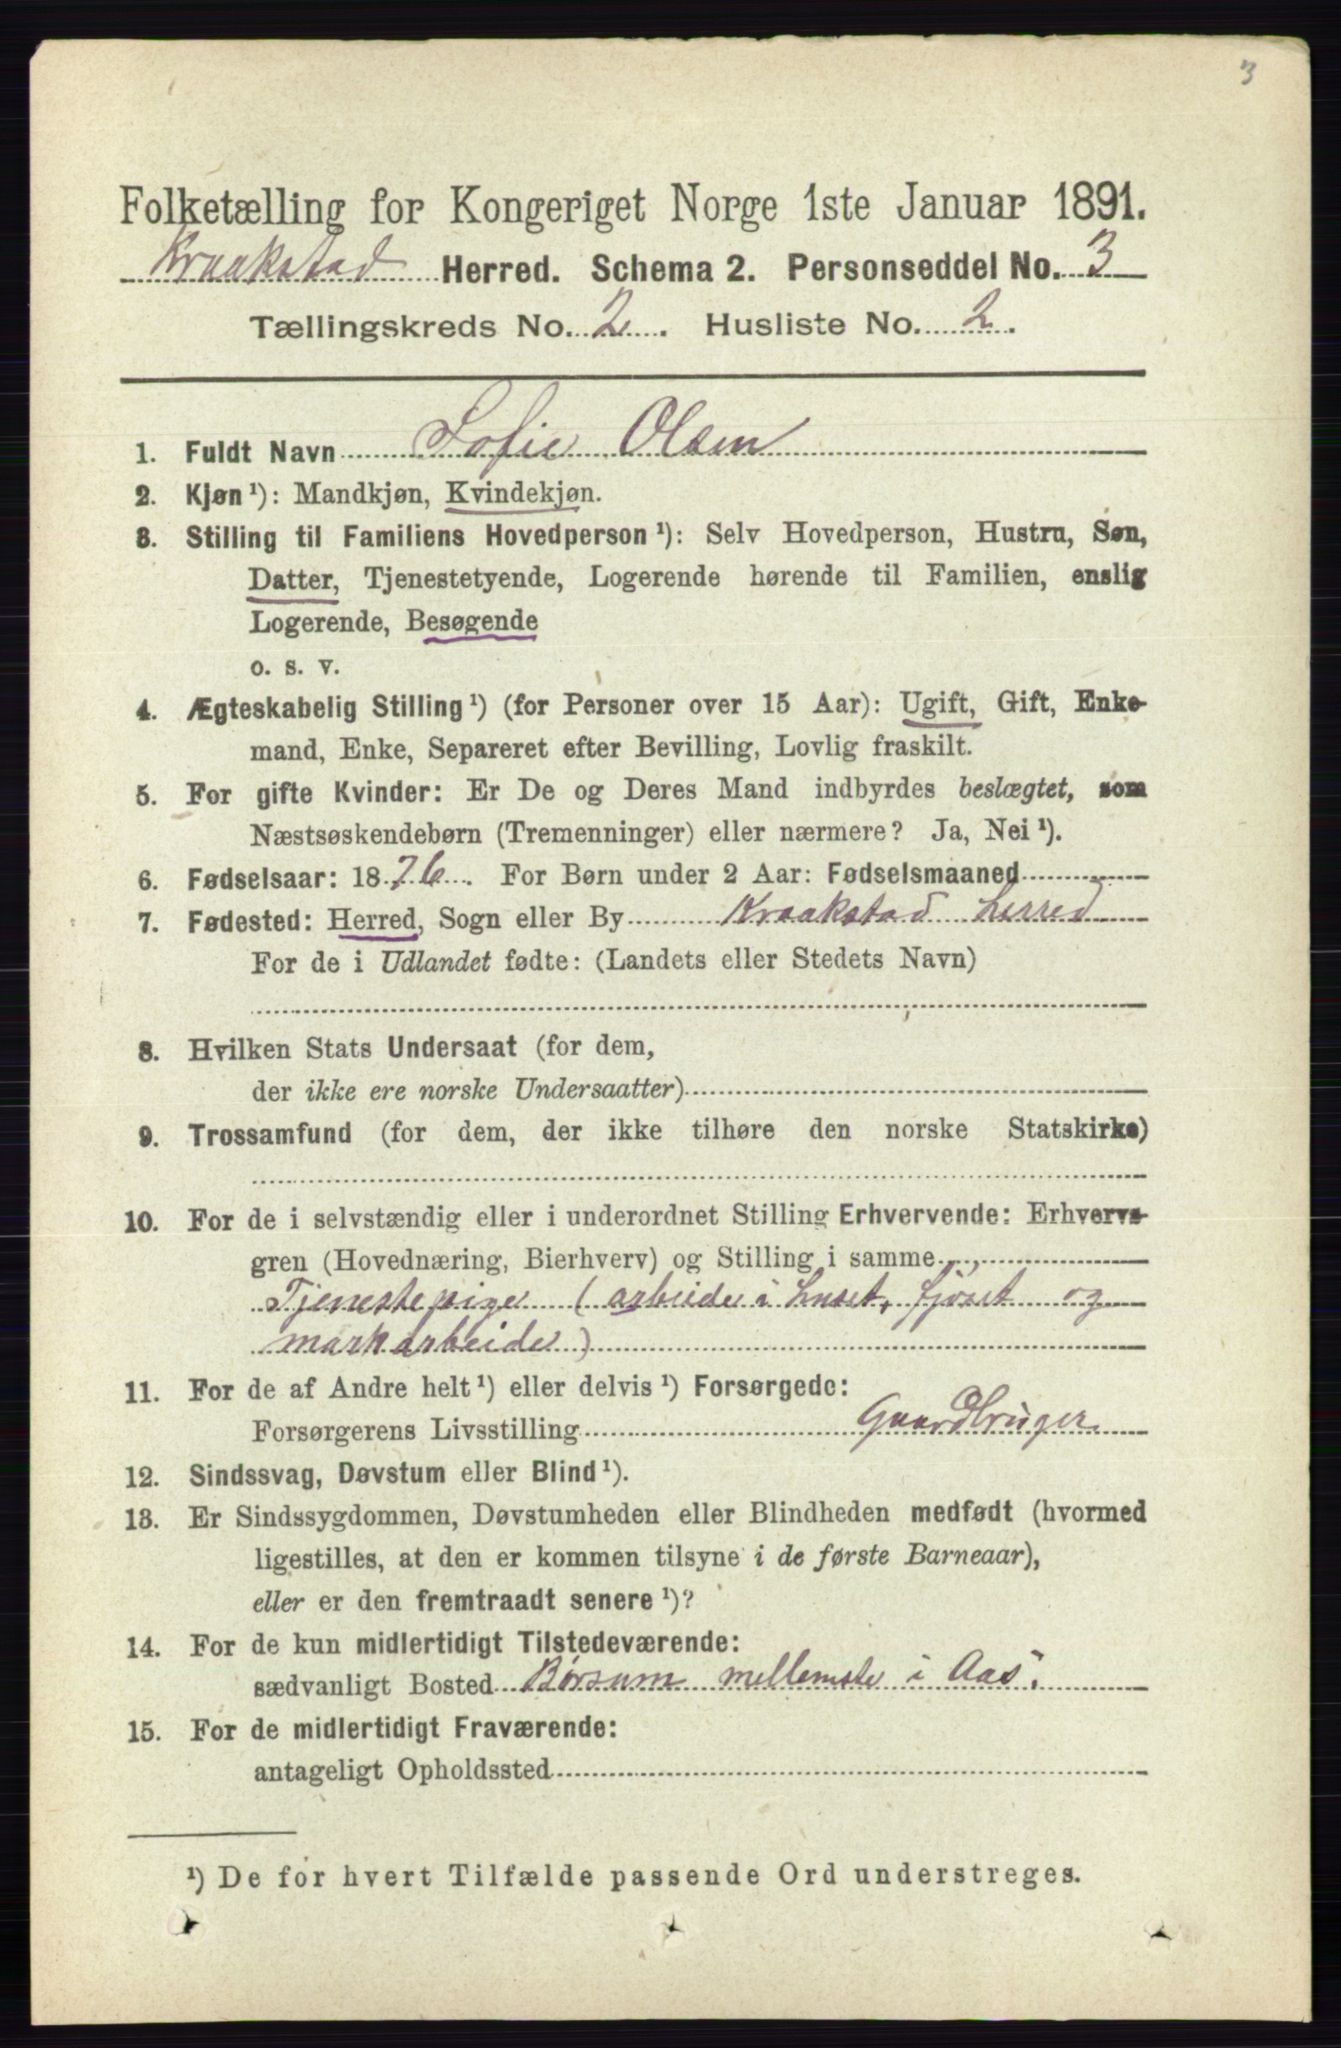 3
Folketælling for Kongeriget Norge 1ste Januar 1891.
Kraakstad Herred. Schema 2. Personseddel No. 3
Tællingskreds No. 2. Husliste No. 2.
1. Fuldt Navn Sofie Olsen
2. Kjøn ¹): Mandkjøn, Kvindekjøn.
3. Stilling til Familiens Hovedperson ¹): Selv Hovedperson, Hustru, Søn,
Datter, Tjenestetyende, Logerende hørende til Familien, enslig
Logerende, Besøgende
o. s. v.
4. Ægteskabelig Stilling ¹) (for Personer over 15 Aar): Ugift, Gift, Enke-
mand, Enke, Separeret efter Bevilling, Lovlig fraskilt.
5. For gifte Kvinder: Er De og Deres Mand indbyrdes beslægtet, som
Næstsøskendebørn (Tremenninger) eller nærmere? Ja, Nei ¹).
6. Fødselsaar: 1876. For Børn under 2 Aar: Fødselsmaaned
7. Fødested: Herred, Sogn eller By Kraakstad herred
For de i Udlandet fødte: (Landets eller Stedets Navn)
8. Hvilken Stats Undersaat (for dem,
der ikke ere norske Undersaatter)
9. Trossamfund (for dem, der ikke tilhøre den norske Statskirke)
10. For de i selvstændig eller i underordnet Stilling Erhvervende: Erhvervs-
gren (Hovednæring, Bierhverv) og Stilling i samme
Tjenestepige (arbeide i huset, fjøset og
markarbeide)
11. For de af Andre helt ¹) eller delvis ¹) Forsørgede:
Forsørgerens Livsstilling Gaardbruger
12. Sindssvag, Døvstum eller Blind ¹).
13. Er Sindssygdommen, Døvstumheden eller Blindheden medfødt (hvormed
ligestilles, at den er kommen tilsyne i de første Barneaar),
eller er den fremtraadt senere ¹)?
14. For de kun midlertidigt Tilstedeværende:
sædvanligt Bosted Børsum mellemste i Aas.
15. For de midlertidigt Fraværende:
antageligt Opholdssted
¹) De for hvert Tilfælde passende Ord understreges.